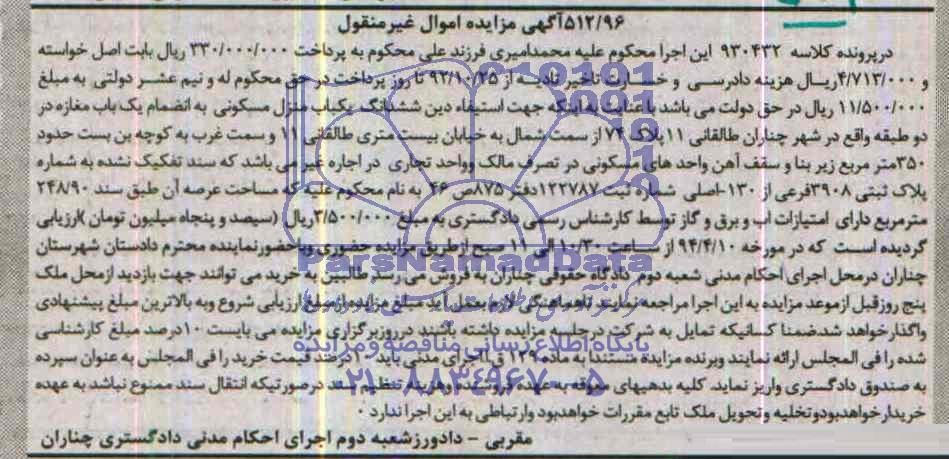 ۵۱۲/۹۶آگهی مزایده اموال غیرمنقول
درپرونده کلاسه ۹۳۰۴۳۲ این اجرا محکوم علیه محمدامیری فرزند علی محکوم به پرداخت ۳۳۰/۰۰۰/۰۰۰ ریال بابت اصل خواسته
و ۴/۷۱۳/۰۰۰ریال هزینه دادرسی و خسارت تاخیر تادیه از ۹۲/۱۰/۲۵ تا روز پرداخت در حق محکوم له و نیم عشر دولتی به مبلغ
۱۱/۵۰۰/۰۰۰ ریال در حق دولت می باشد با عنایت به اینکه جهت استیفاء دین ششدانگ یکباب منزل مسکونی به انضمام یک باب مغازه در
دو طبقه واقع در شهر چناران طالقانی ۱۱پلاک ۷۴ از سمت شمال به خیابان بیست متری طالقانی ۱۱ و سمت غرب به کوچه بن بست حدود
۳۵۰متر مربع زیر بنا و سقف آهن واحد های مسکونی در تصرف مالک وواحد تجاری در اجاره غیر می باشد که سند تفکیک نشده به شماره
پلاک ثبتی ۳۹۰۸فرعی از ۱۳۰-اصلی شماره ثبت ۱۲۲۷۸۷دفتر ۸۷۵ص ۴۶ به نام محکوم علیه که مساحت عرصه آن طبق سند ۲۴۸/۹۰
مترمربع دارای امتیازات اب و برق و گاز توسط کارشناس رسمی دادگستری به مبلغ ۳/۵۰۰/۰۰۰ریال (سیصد و پنجاه میلیون تومان )ارزیابی
گردیده است که در مورخه ۹۴/۴/۱۰ از ساعت ۱۰/۳۰ الی ۱۱ صبح ازطریق مزایده حضوری وباحضورنماینده محترم دادستان شهرستان
چناران درمحل اجرای احکام مدنی شعبه دوم دادگاه حقوقی چناران به فروش می رسد طالبین به خرید می توانند جهت بازدید ازمحل ملک
پنج روزقبل ازموعد مزایده به این اجرا مراجعه نمایند تاهماهنگی لازم بعمل آید مبلغ مزایده ازمبلغ ارزیابی شروع وبه بالاترین مبلغ پیشنهادی
واگذارخواهد شد.ضمنا کسانیکه تمایل به شرکت درجلسه مزایده داشته باشند درروز برگزاری مزایده می بایست ۱۰درصد مبلغ کارشناسی
شده را فی المجلس ارائه نمایند وبرنده مزایده مستندا به ماده ۱۲۹ ق اجرای مدنی باید ۱۰درصد قیمت خرید را فی المجلس به عنوان سپرده
به صندوق دادگستری واریز نماید. کلیه بدهیهای معوقه به عهده فروشنده وهزینه تنظیم سند درصورتیکه انتقال سند ممنوع نباشد به عهده
خریدارخواهدبودوتخلیه وتحویل ملک تابع مقررات خواهدبود وارتباطی به این اجرا ندارد .
مقربی - دادورزشعبه دوم اجرای احکام مدنی دادگستری چناران
ParsNamadData
پایگاه اطلاع رسانی مناقصه و مزایده
۰۲۱-۸۸۳۴۹۶۷۰-۵